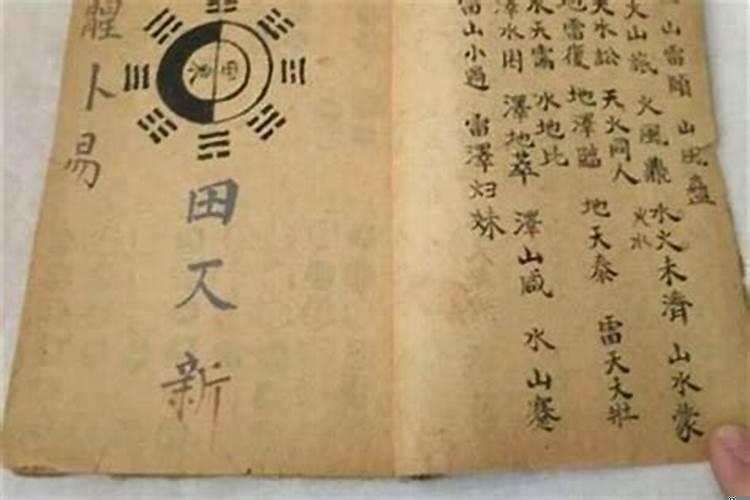 山雷頤 山風蠱
火山旅 火風鼎 水火未濟 山水蒙
火水
天水訟 天火同人
地雷復 地澤臨 地天泰 雷天大壯
水天需 水地比
澤水困 澤地萃 澤山咸 水山蹇
雷山小過 雷澤归妹
田
卜易
田
新